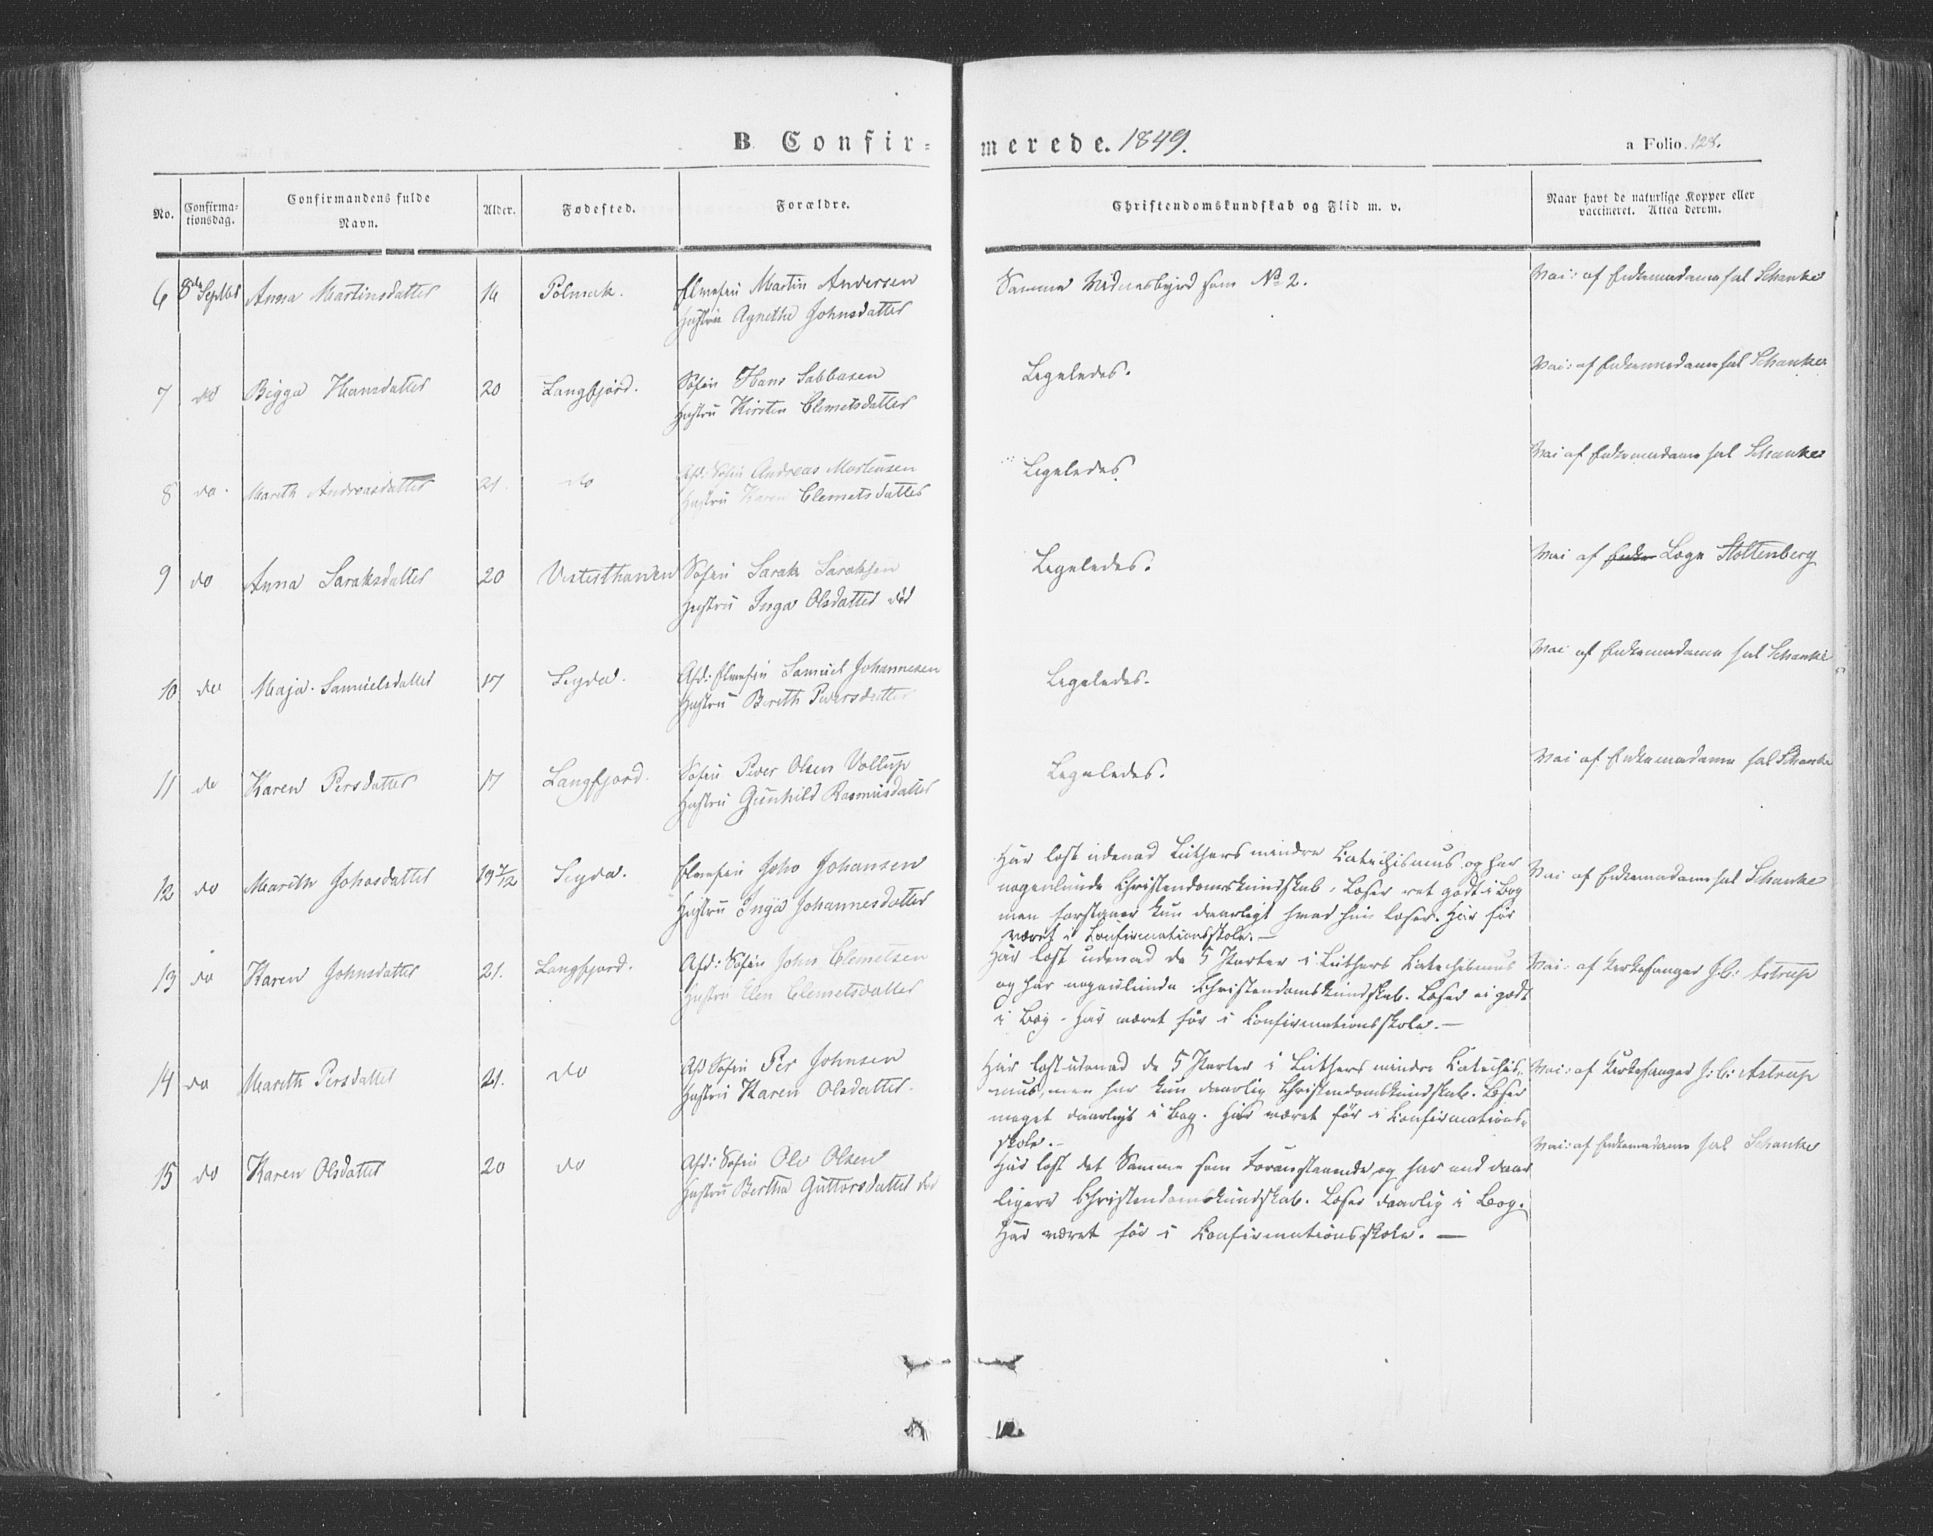 B Confir-merede. 1849.
a Folio. 128.
No.
Confirma-
tionsdag.
Confirmandens fulde
Navn.
Alder.
Fødested.
Forældre.
Christendomskundskab og Flid m. v.
Naar havt de naturlige Kopper eller
vaccineret. Attest derom.
6 8de Septbr Anna Martinsdatter 16 Polmak.
Elvefin Martin Andersen
Hustru Agnethe Johnsdatter
Samme Vidnesbyrd som No 2.
Vai: af Enkemadame sal Schanke
7 do Bigga Hansdatter 20 Langfjord.
Søfin Hans Sabbasen
Hustru Kirsten Clemetsdatter
Ligeledes.
Vai: af Enkemadame sal Schanke
8 do. Mareth Andreasdatter 21. do
Afd: Søfin Andreas Mortensen
Hustru Karen Clemetsdatter
Ligeledes
Vai af Enkemadame sal Schanke
9 do Anna Saraksdatter 20 Vesterthanen
Søfin Sarak Saraksen
Hustru Inga Olsdatter død
Ligeledes.
Vai af Enke Læge Stoltenberg
10 do Maja Samuelsdatter 17 Seyda.
Afd: Elvefin Samuel Johannesen
Hustru Berith Pedersdatter
Ligeledes.
Vai af Enkemadame sal Schanke
11 do Karen Persdatter 17 Langfjord.
Søfin Peder Olsen Vollup
Hustru Gunhild Rasmusdatter
Ligeledes.
Vai af Enkemadame sal Schanke
12 do Marith Johasdatter 19 7/12 Seyda.
Elvefin Joho Johansen
Hustru Inga Johannesdatter
Har læst udenad Luthers mindre Katechismus og har
nogenlunde Christendomskundskab, Læser ret godt i Bog
men forstaaer kun daarligt hvad hun læser. Har før
været i Confirmationsskole. —
Vai af Enkemadame sal Schanke
13 do Karen Johnsdatter 21. Langfjord.
Afd: Søfin John Clemetsen
Hustru Elen Clemetsdatter
Har læst udenad de 5 Parter i Luthers Katechismus
og har nogenlunde Christendomskundskab. Læser ei godt
i Bog. Har været før i Confirmationsskole. —
Vai: af Kirkesanger J. C: Astrup
14 do Mareth Persdatter 21. do
Afd Søfin Per Johnsen
Hustru Karen Olsdatter.
Har læst udenad de 5 Parter i Luthers mindre Katechis-
mus, men har kun daarlig Christendomskundskab. Læser
meget daarligt i Bog. Har været før i Confirmations-
skole. —
Vai: af Kirkesanger J. C: Astrup
15 do Karen Olsdatter 20 do
Afd: Søfin Ole Olsen
Hustru Bertha Guttorsdatter død
Har læst det Samme som Foranstaaende og har end daar
ligere Christendomskundskab. Læser daarlig i Bog.
Har været før i Confirmationsskole. —
Vai: af Enkemadame sal Schanke